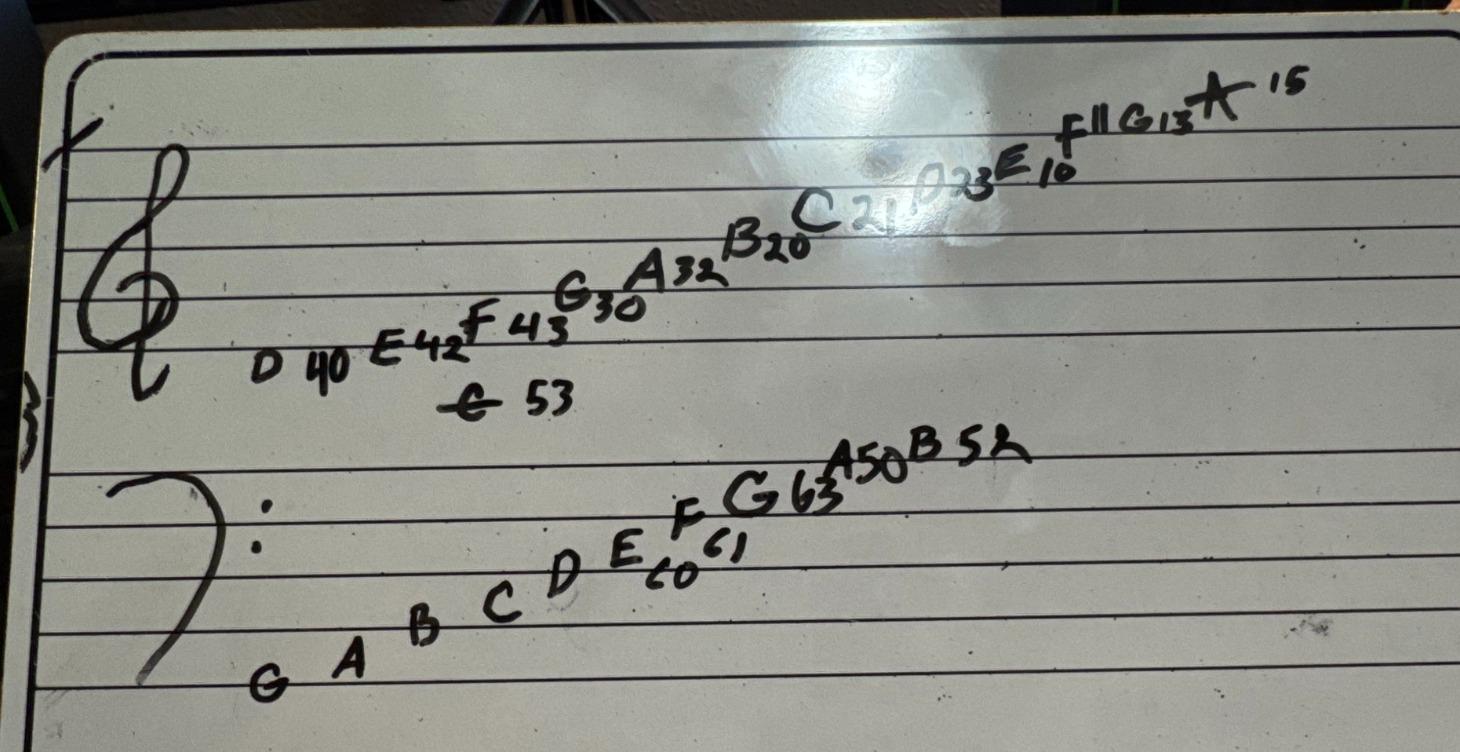 D 40 E 42 F 43 G 30 A 32 B 20 C 21 D 23 E 10 F 11 G 13 A 15
C 53
G A B C D E 60 F 61 G 63 A 50 B 52